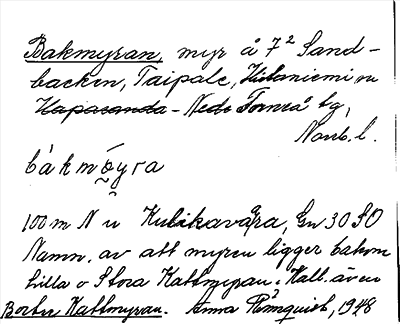 Bakmyran, myr å 7² Sand-
backen, Taipale, Hietaniemi sn
Haparanda - Nedertorneå tg,
Norrb. l.
bàkmýra
100 m N u Kulikavåra, Gn 30 SO
Namn. av att myren ligger bakom
Lilla o Stora Kattmyran. Kall. även
Bortre Kattmyran. Anna Blomquist, 1948